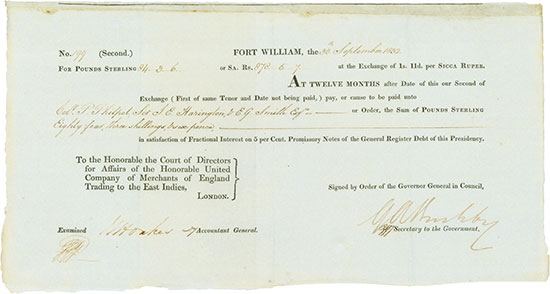 No. 199 (Second.) FORT WILLIAM, the 30th September 1822
FOR POUNDS STERLING 84. 3. 6. OR SA. RS. 878. 5. 7 at the Exchange of 1s. 11d. per SICCA RUPEE.
AT TWELVE MONTHS after Date of this our Second of
Exchange (First of same Tenor and Date not being paid,) pay, or cause to be paid unto
Col. J. E. Harington & E. G. Smith Esq. or Order, the Sum of POUNDS STERLING
Eighty four, three shillings, & six pence,
in satisfaction of Fractional Interest on 5 per Cent. Promissory Notes of the General Register Debt of this Presidency.
To the Honorable the Court of Directors
for Affairs of the Honorable United
Company of Merchants of England
Trading to the East Indies,
LONDON.
Signed by Order of the Governor General in Council,
Examined Accountant General.
Secretary to the Government,